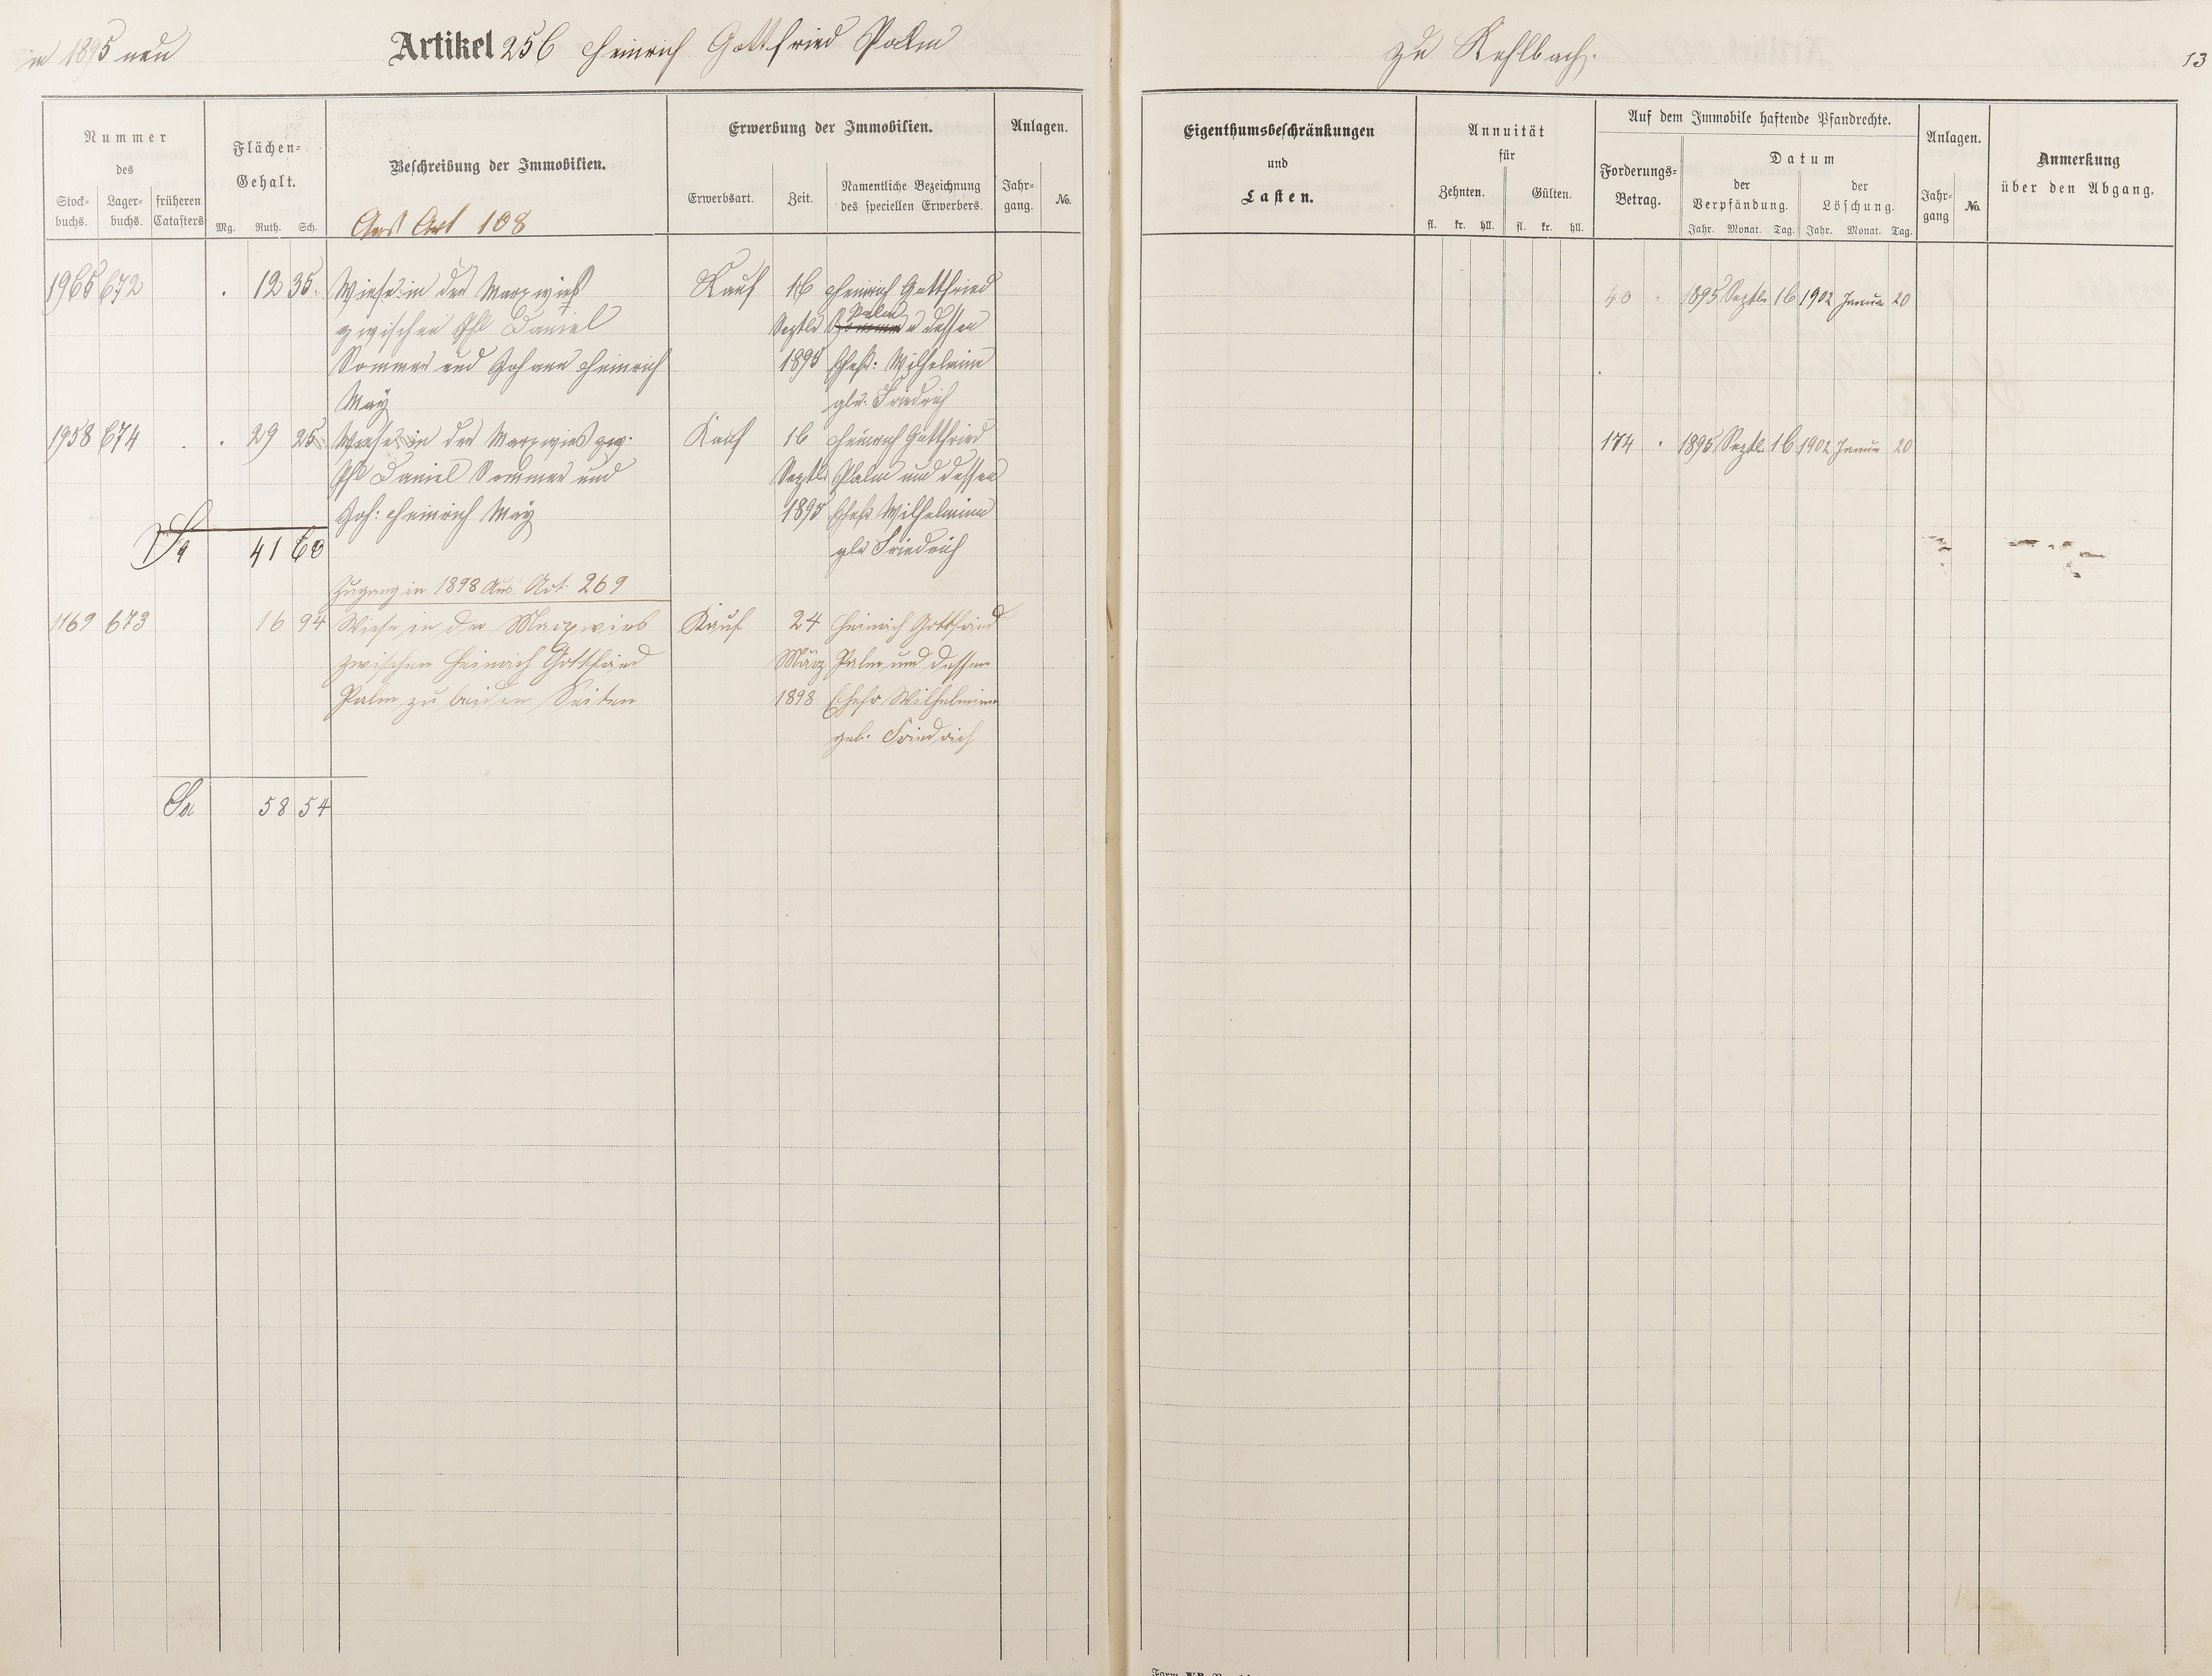 in 1895 neu
Artikel 256 Heinrich Gottfried Palm
zu Kehlbach.
13
Nummer
des
Stock-buchs.
Lager-buchs.
früheren Catasters
Flächen-Gehalt.
Mg. Ruth. Sch.
Beschreibung der Immobilien.
Aus Art 108
Erwerbung der Immobilien.
Erwerbsart.
Zeit.
Namentliche Bezeichnung
des speciellen Erwerbers.
Anlagen.
Jahr-gang.
No.
Eigenthumsbeschränkungen
und
Lasten.
Annuität
für
Zehnten.
Gülten.
fl. kr. hll. fl. kr. hll.
Auf dem Immobile haftende Pfandrechte.
Forderungs-
Betrag.
Datum
der
Verpfändung.
der
Löschung.
Jahr. Monat. Tag. Jahr. Monat. Tag.
Anlagen.
Jahr-gang
No.
Anmerkung
über den Abgang.
1965 672 . 12 35 Wiese in der Marxwies Kauf 16 Heinrich Gottfried 40 . 1895 Septbr 16 1902 Januar 20
zwischen Phl Daniel Septbr Palm u dessen
Sommer und Johann Heinrich 1895 Ehefr: Wilhelmine
May geb. Friedrich
1958 674 . . 29 25 Wiese in der Marxwies zw. Kauf 16 Heinrich Gottfried 174 . 1895 Septbr 16 1902 Januar 20
Phl Daniel Sommer und Septbr Palm und dessen
Joh: Heinrich May 1895 Ehefr Wilhelmine
Sa 41 60 geb Friedrich
Zugang in 1898 Aus Art. 269
1169 673 16 94 Wiese in der Marxwies Kauf 24 Heinrich Gottfried
zwischen Heinrich Gottfried März Palm und dessen
Palm zu beiden Seiten 1898 Ehefr Wilhelmine
geb. Friedrich
Sa 58 54